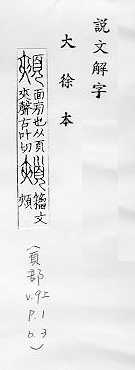 說文解字
大徐本
頰 面旁也从頁
夾聲古叶切 籀文
頰
(頁部
v.9上
P.1
b.3
)